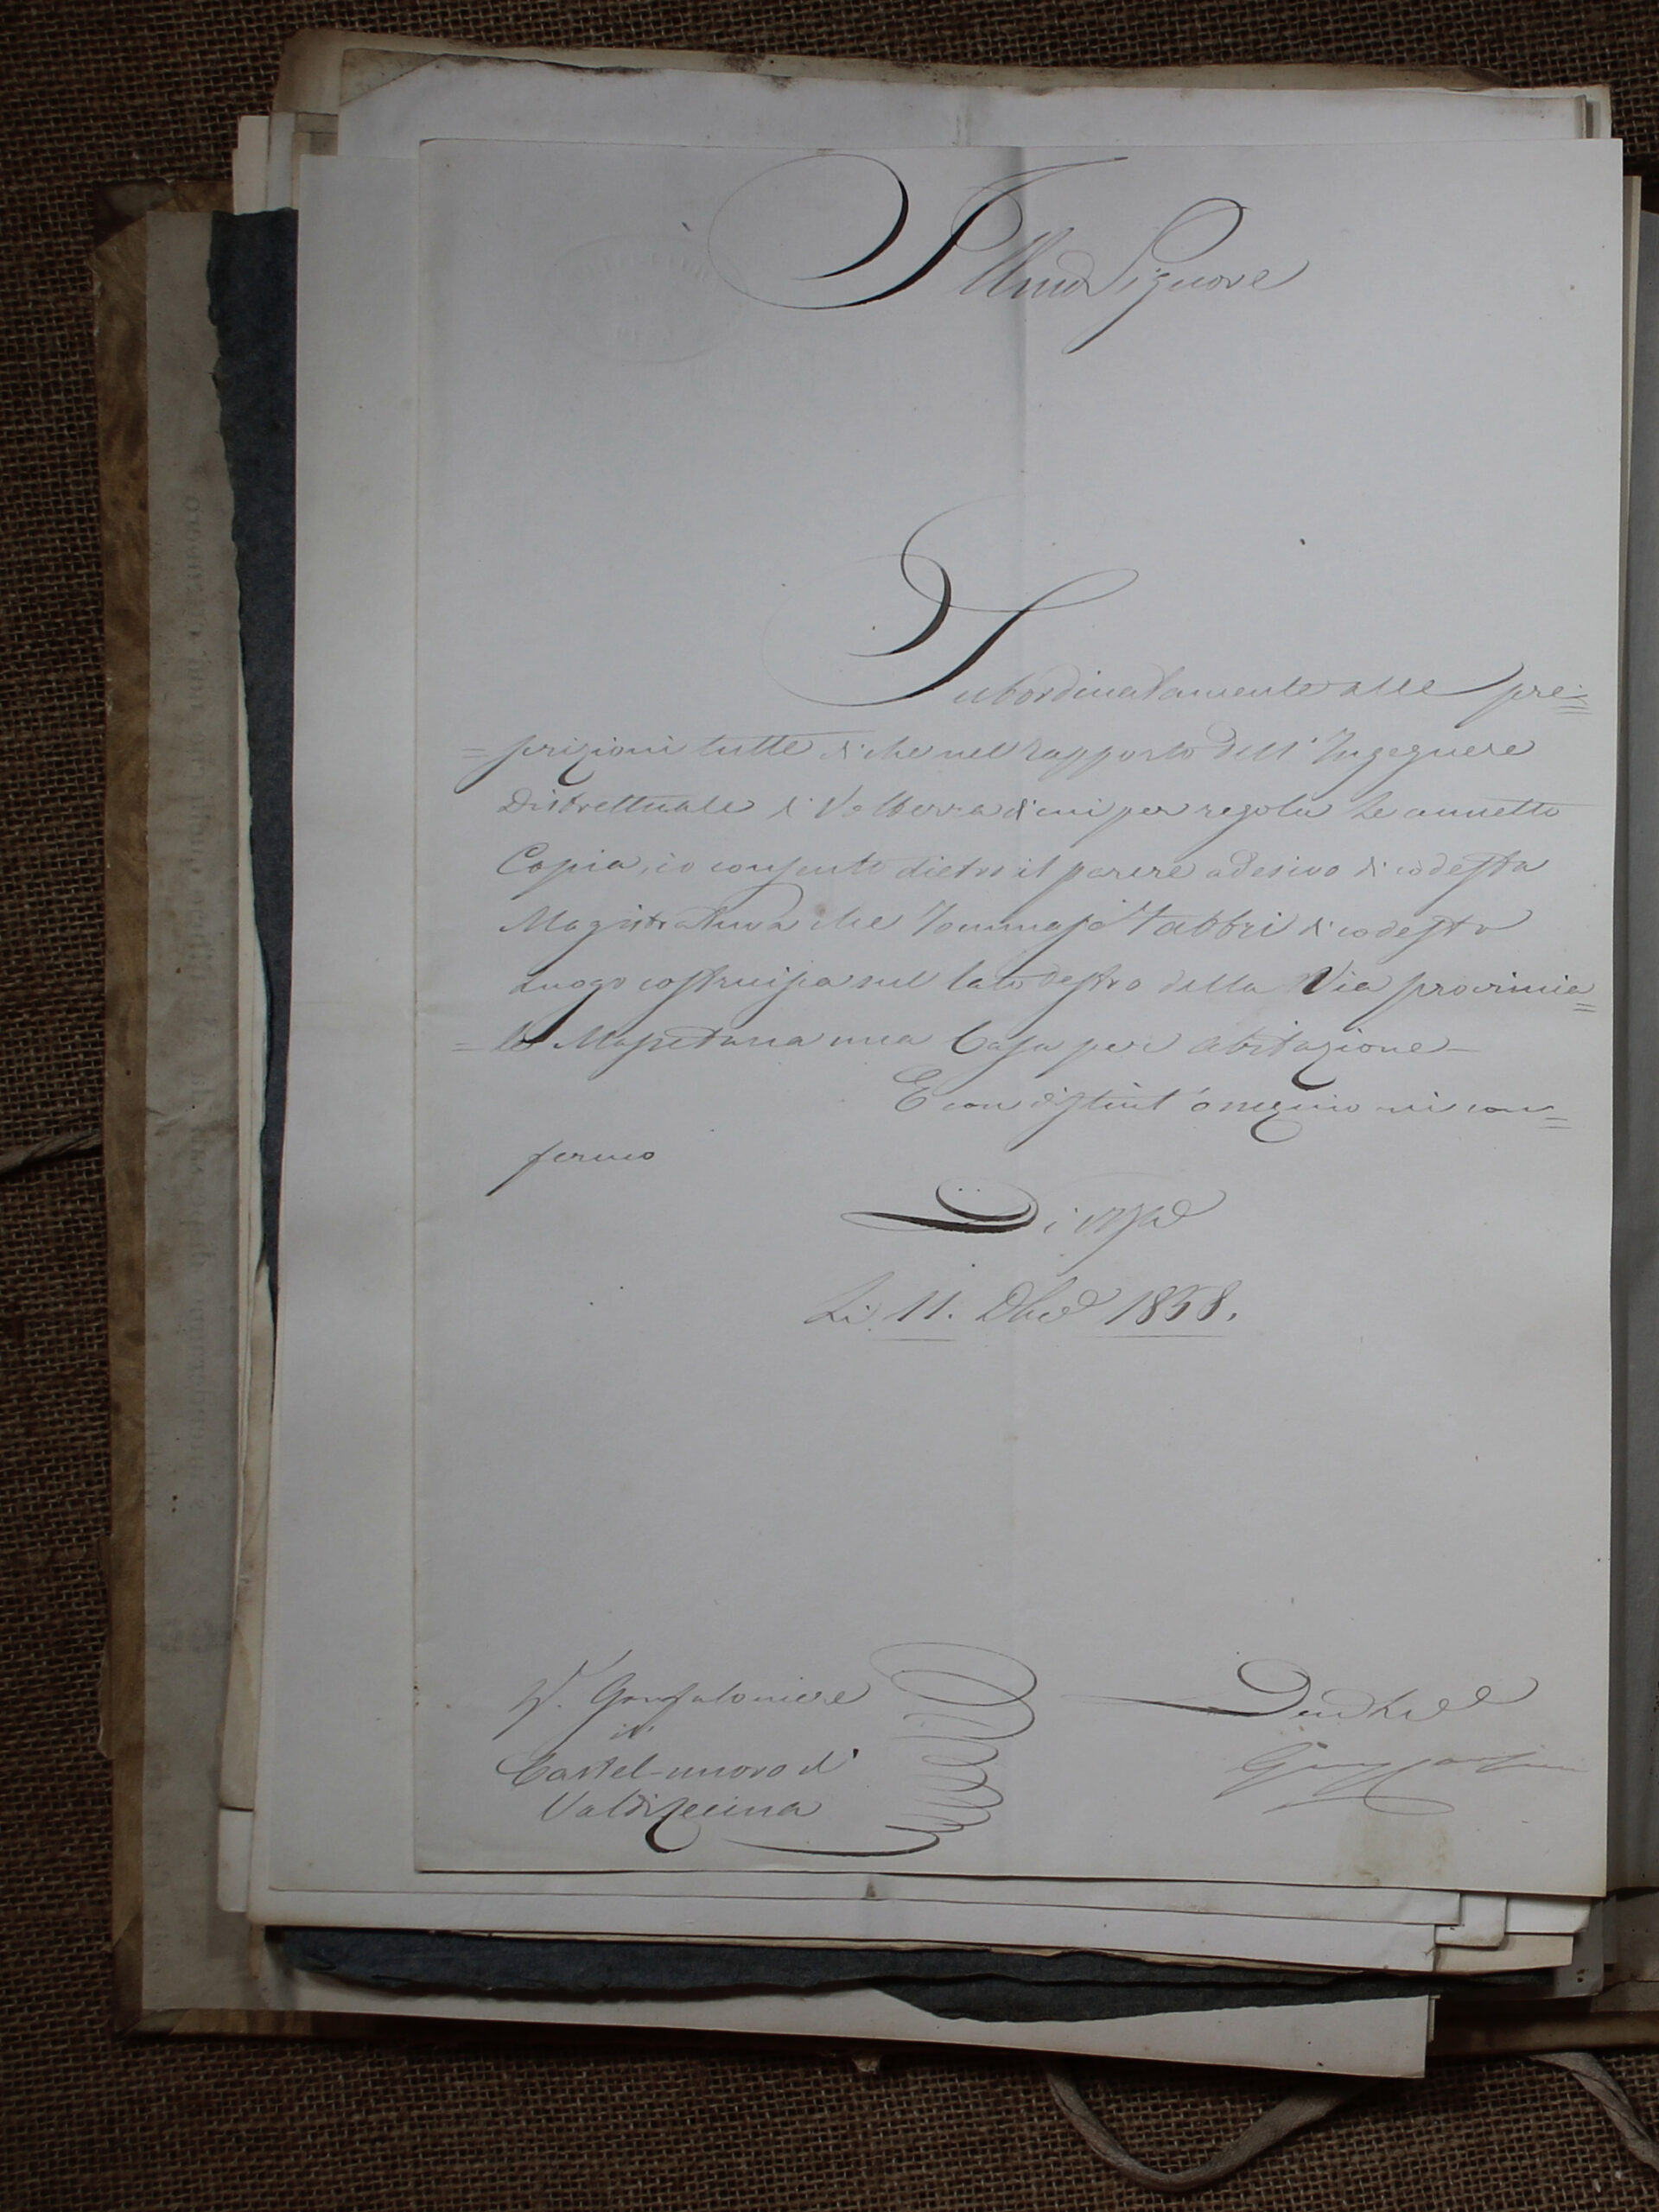 Illmo Signore
Subordinatamente alle pre=
=scrizioni tutte di che nel rapporto dell' Ingegnere
Distrettuale di Volterra di cui per regola Le annetto
Copia, io consento dietro il parere adesivo di codesta
Magistratura che Tommaso Fabbri di codesto
Luogo costruisca sul lato destro della Via provincia=
=le Massetana una Casa per abitazione
E con distint' ossequio mi con=
fermo
Di VSIll
Li 11. Dbre 1858.
Sr. Gonfaloniere
di
Castel-nuovo di
Valdicecina